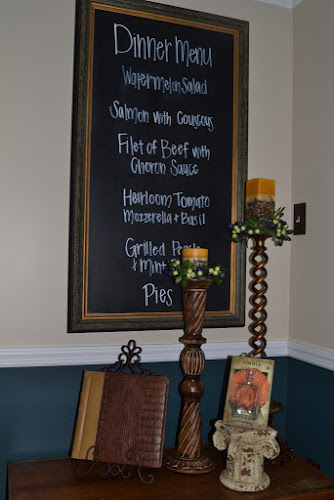 Dinner Menu
Watermelon Salad
Salmon with Couscous
Filet of Beef with
Choron Sauce
Heirloom Tomato
Mozzerella & Basil
Grilled
& Mint
Pies